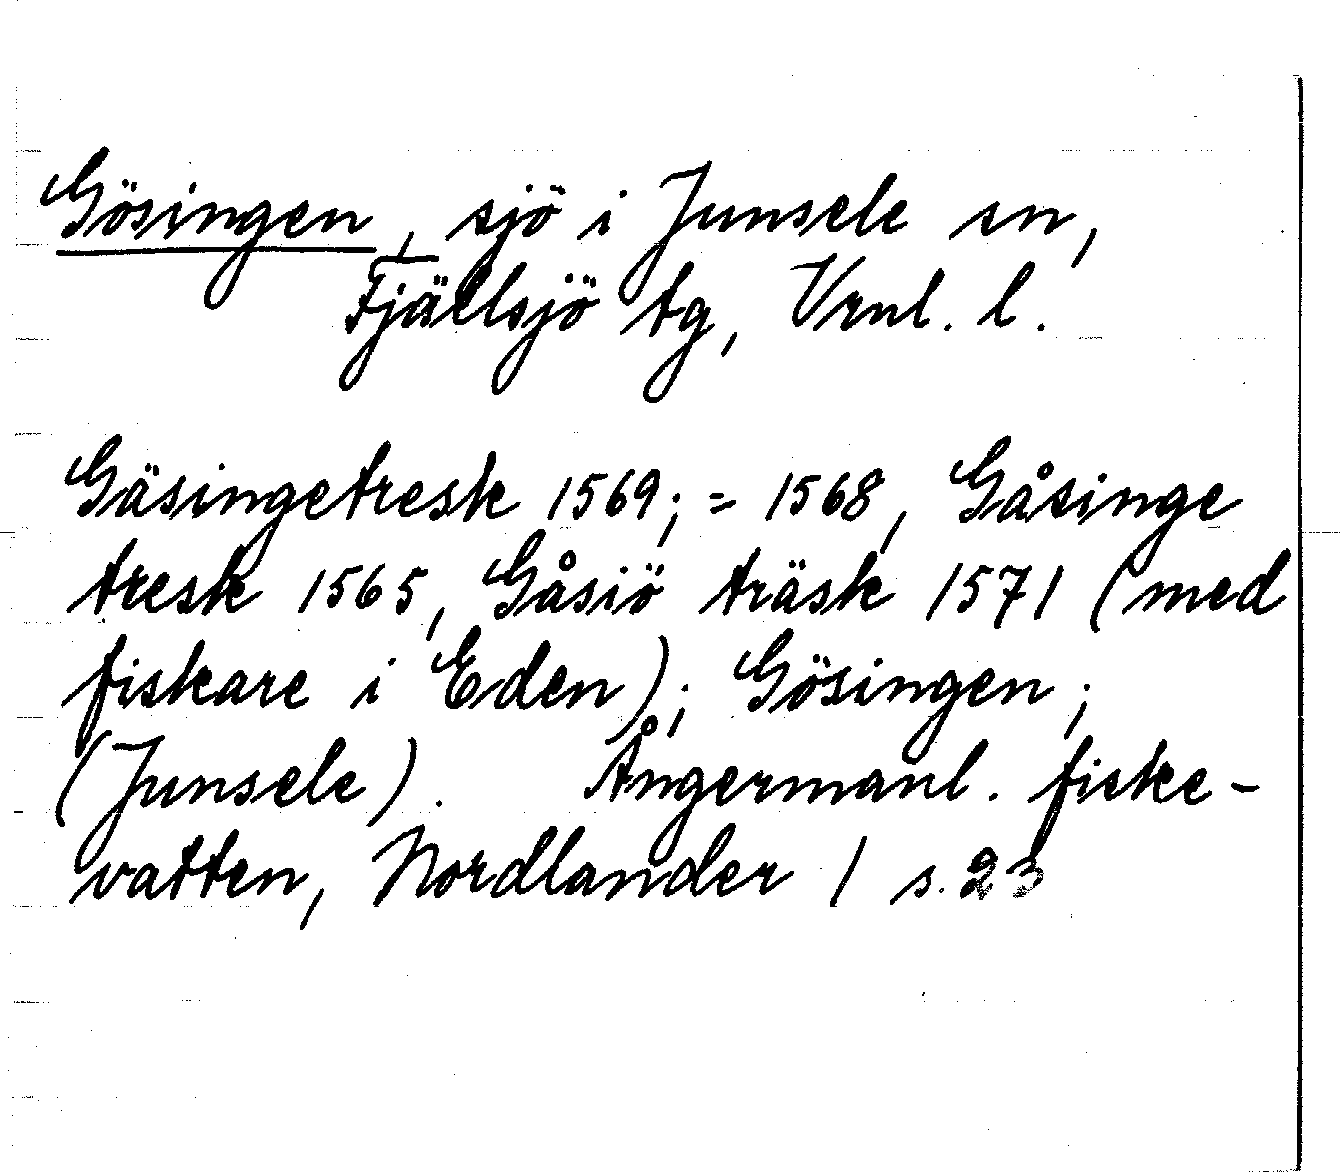 Gösingen, sjö i Junsele sn,
Fjällsjö tg, Vrnl. l.
Gäsingetresk 1569; = 1568, Gåsinge
tresk 1565, Gåsiö träsk 1571 (med
fiskare i Eden); Gösingen;
(Junsele). Ångermanl. fiske-
vatten, Nordlander 1 s. 23